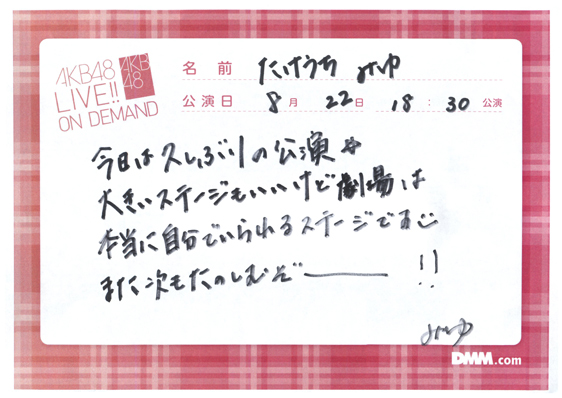 AKB48
LIVE!!
ON DEMAND
AKB
48
名前 たけうち みゆ
公演日 8月 22日 18:30 公演
今日は久しぶりの公演
大きいステージもいいけど劇場は
本当に自分でいられるステージです
また次もたのしむぞ———!!
みゆ
DMM.com